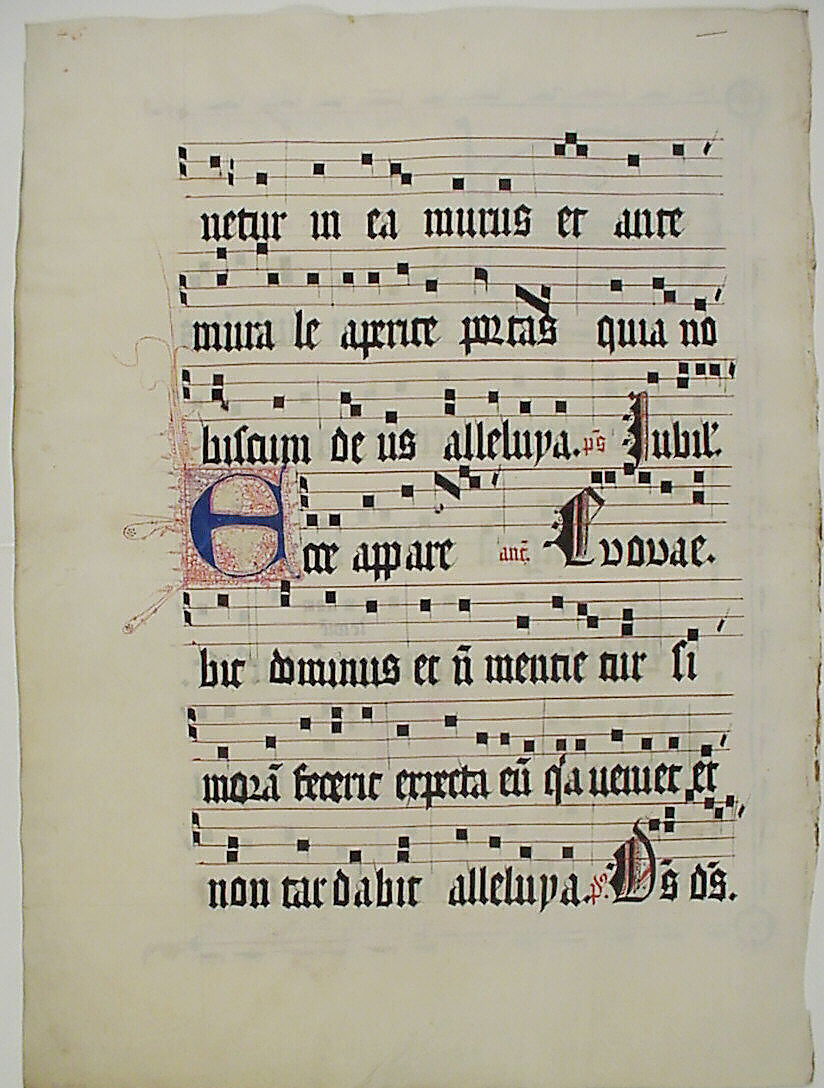 netur in ea murus et ante
mura le aperite portas quia no
biscum de us alleluya. p̄s Jubil'.
Ecce appare ant̄. Evovae.
bit dominus et n̄ mentie tur si
morā fecerit expecta eū q'a veniet et
non tar dabit alleluya. ps. D̄s d̄s.